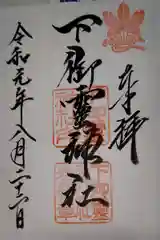 奉拝
下御靈神社
令和元年八月二十六日